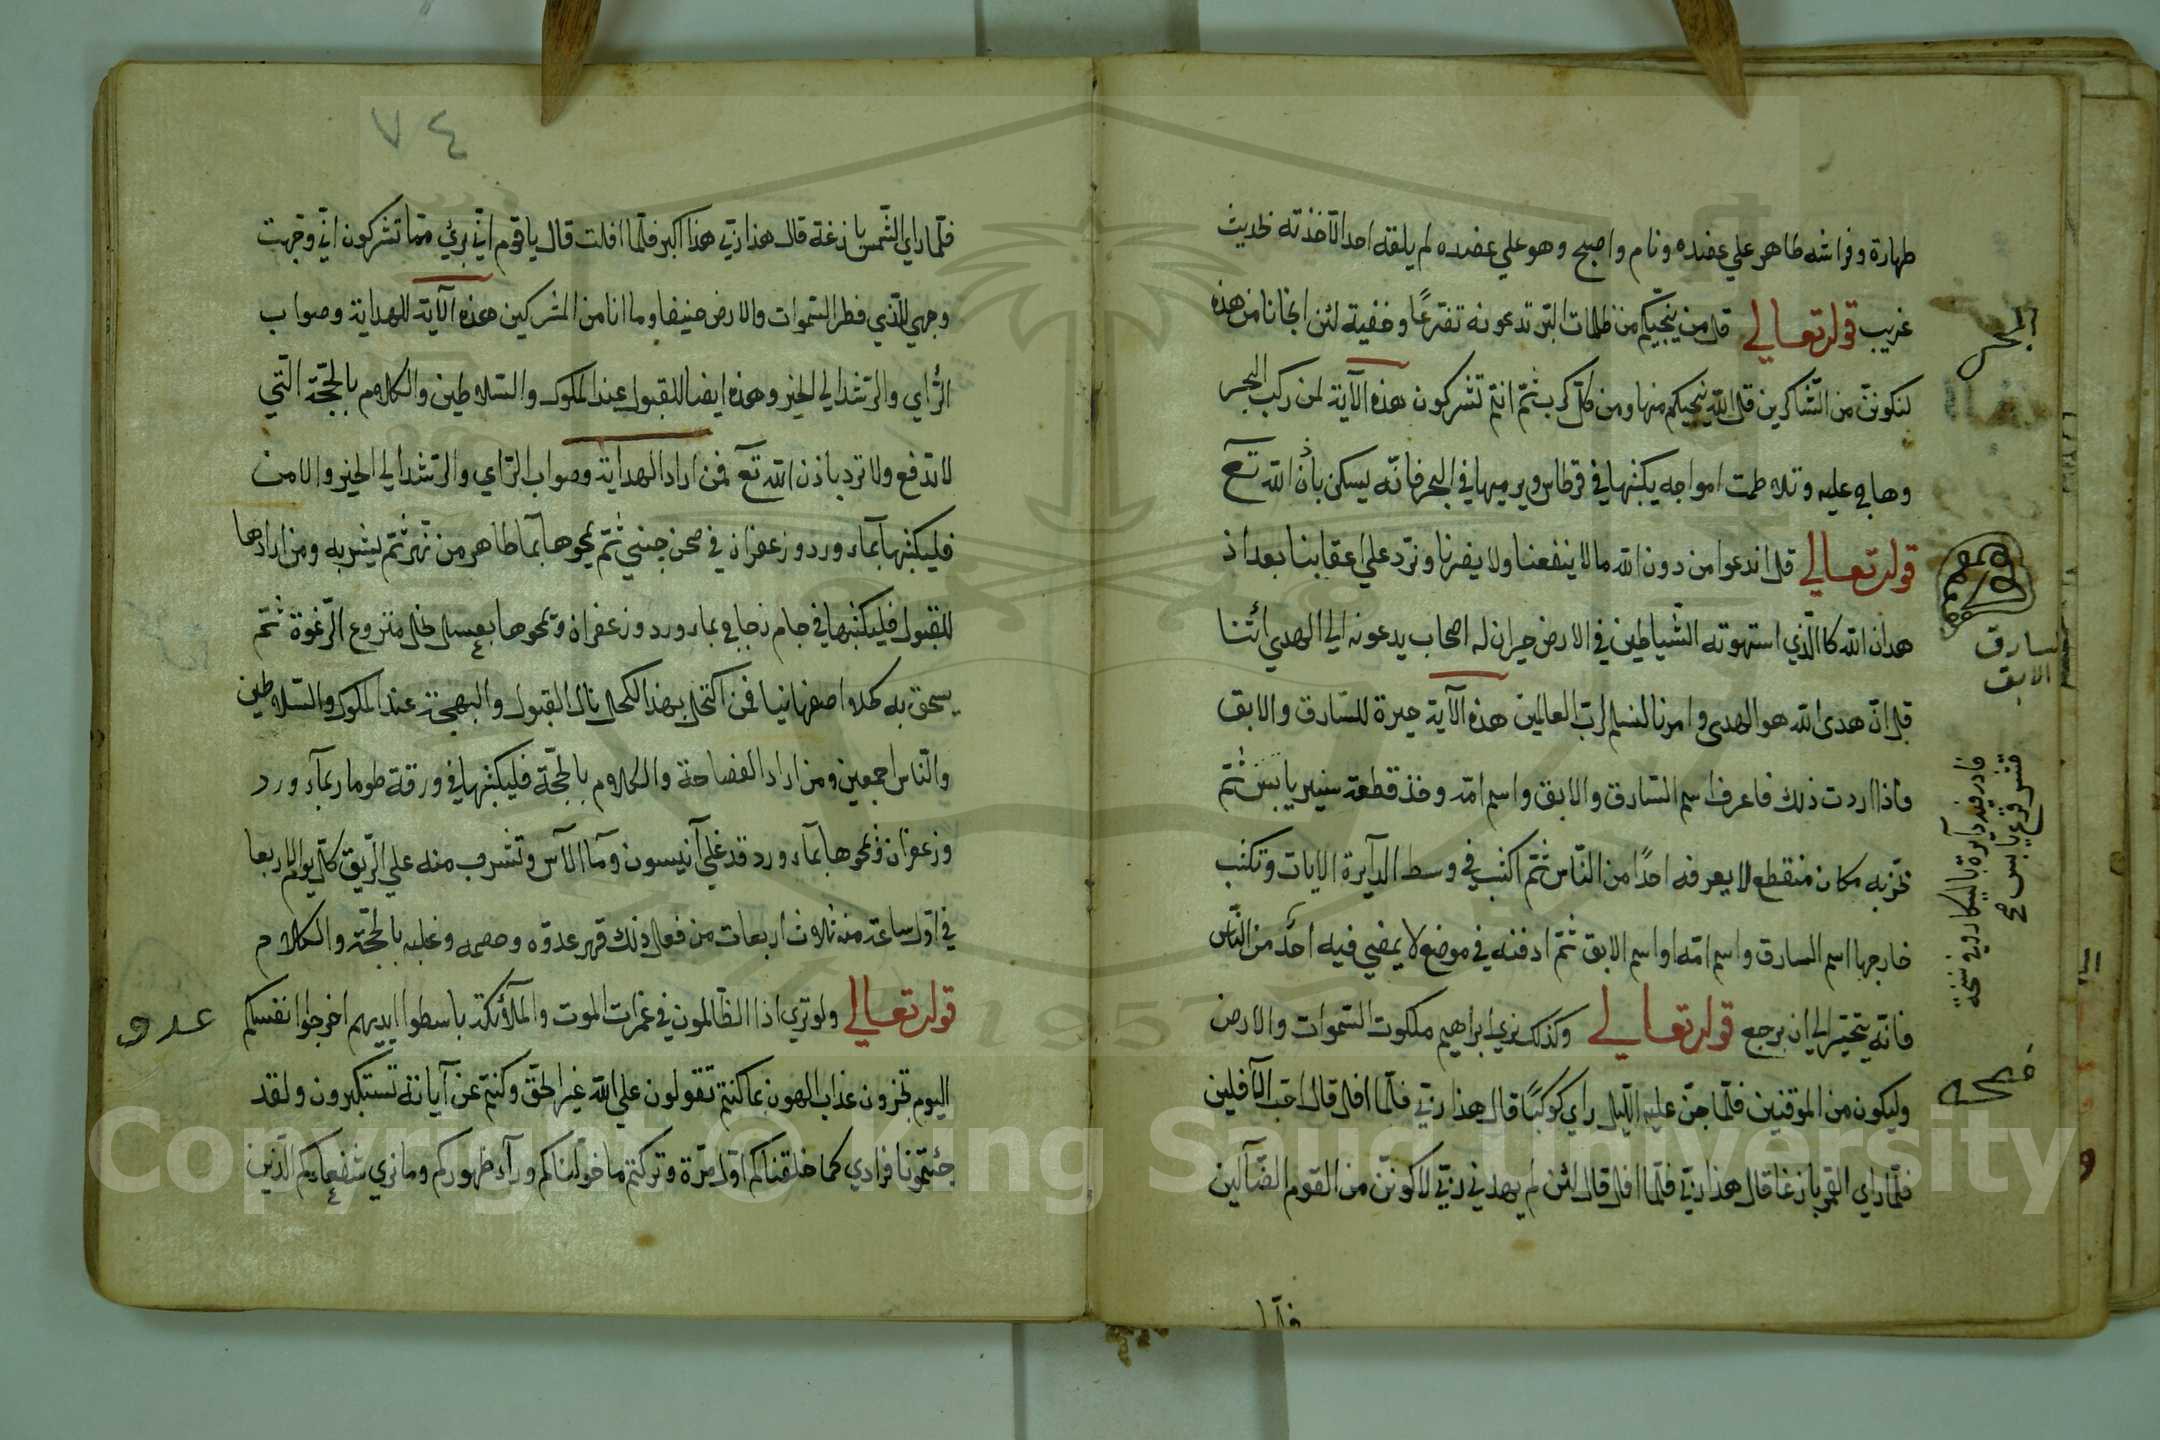 طهارة وفراشه طاهر علي عضده ونام واصبح وهو علي عضده لم يلقه احد الا خذته لحديث
غريب قوله تعالي قل من ينجيكم من ظلمات البر تدعونه تضرعًا وخفية لئن انجانا من هذه
لنكونن من الشاكرين قل الله ينجيكم منها ومن كل كرب ثم انتم تشركون هذه الآية لمن ركب البحر
وهاج عليه وتلاطمت امواجه يكتبها في قرطاس ويرميها في البحر فانه يسكن باذن الله تعآ
قوله تعالي قل اندعوا من دون الله ما لا ينفعنا ولا يضرنا ونرد علي اعقابنا بعد اذ
هدان الله كا الذي استهوته الشياطين في الارض حيران له اصحاب يدعونه الي الهدي ائتنا
قل ان هدى الله هو الهدى وامرنا لنسلم لرب العالمين هذه الآية حيرة للسارق والابق
فاذا اردت ذلك فاعرف اسم السارق والابق واسم امه وخذ قطعة يابس ثم
مكان منقطع لا يعرفه احدًا من الناس ثم اكتب في وسط الدآيرة الايات وتكتب
خارجها اسم السارق واسم امه او اسم الابق ثم ادفنه في موضع لا يمضي فيه احد من الناس
فانه يتحير الي ان يرجع قوله تعالي وكذلك نري ابراهيم ملكوت السموات والارض
وليكون من الموقنين فلما جن عليه الليل راي كوكبًا قال هذا ربي فلما افل قال لا احب الآفلين
فلما راي القمر بازغا قال هذا ربي فلما افل قال لئن لم يهدني ربي لاكونن من القوم الضآلين
فلما
البحر
السارق
الابق
قش قرع يابس صح
٤٧
فلما راي الشمس بازغة قال هذا ربي هذا اكبر فلما افلت قال يا قوم اني بريئ مما تشركون اني وجهت
وجهي للذي فطر السموات والارض حنيفا وما انا من المشركين هذه الآية للهداية وصواب
الراي والرشد الي الخير وهذه ايضا للقبول عند الملوك والسلاطين والكلام بالحجة التي
لا تدفع ولا ترد باذن الله تعآ فمن اراد الهداية وصواب الراي والرشد الي الخير والامن
فليكتبها بمآء ورد وزعفران في صحن جيني ثم يمحوها بمآ طاهر من نهر ثم يشربه ومن ارادها
للقبول فليكتبها في جام زجاج بماء ورد وزعفران ويمحوها بعسل نحل منزوع الرغوة ثم
يسحق به كحلا اصفهانيا فمن اكتحل بهذا الكحل نال القبول والبهجة عند الملوك والسلاطين
والناس اجمعين ومن اراد الفصاحة والكلام بالحجة فليكتبها في ورقة طومار بمآء ورد
وزعفران ويمحوها بمآء ورد قد غلي آنيسون ومآ الآس وتشرب منه علي الريق كل يوم الاربعا
في اول ساعة منه ثلاث اربعات من فعل ذلك قهر عدوه وخصمه وغلبه بالحجة والكلام
قوله تعالي ولو تري اذا الظالمون في غمرات الموت والملآئكة باسطوا ايديهم اخرجوا انفسكم
اليوم تجزون عذاب الهون بما كنتم تقولون علي الله غير الحق وكنتم عن آياته تستكبرون ولقد
جئتمونا فرادي كما خلقناكم اول مرة وتركتم ما خولناكم ورآء ظهوركم وما نري شفعاءكم الذين
عدو
Copyright © King Saud University
1957